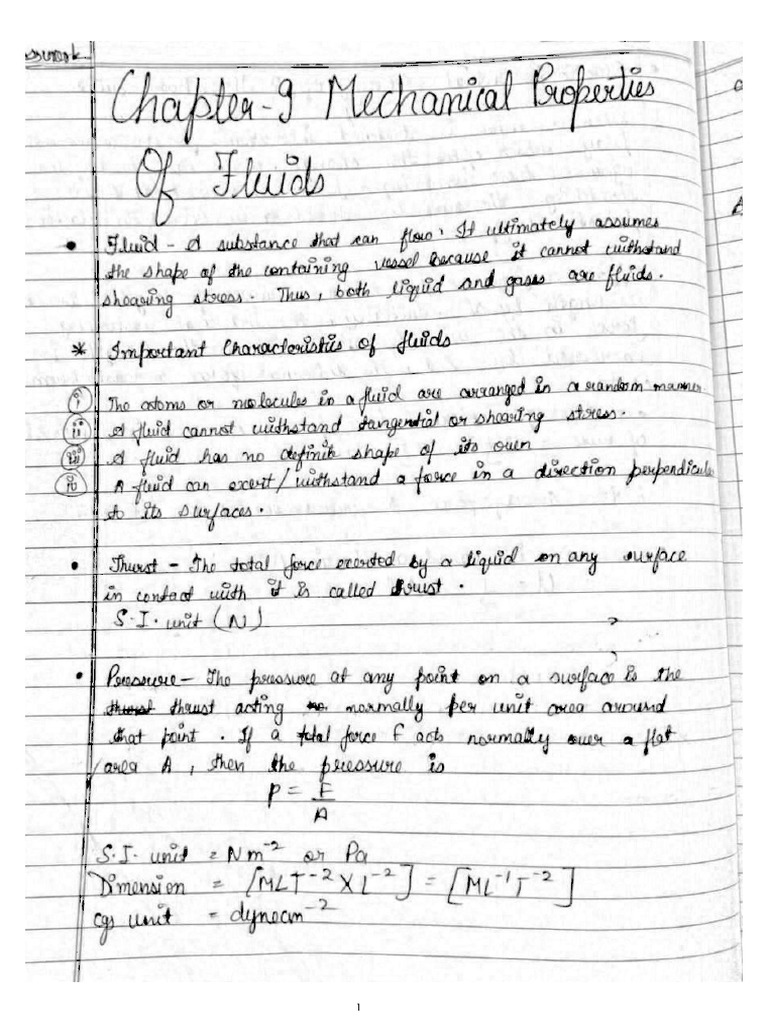 Chapter-9 Mechanical Properties
Of Fluids
• Fluid - A substance that can flow. It ultimately assumes
the shape of the containing vessel because it cannot withstand
shearing stress. Thus, both liquid and gases are fluids.
* Important Characteristics of fluids
(i) The atoms or molecules in a fluid are arranged in a random manner.
(ii) A fluid cannot withstand tangential or shearing stress.
(iii) A fluid has no definite shape of its own
(iv) A fluid can exert/withstand a force in a direction perpendicular
to its surfaces.
• Thurst - The total force exerted by a liquid on any surface
in contact with it is called thrust.
S.I. unit (N)
• Pressure - The pressure at any point on a surface is the
thrust acting normally per unit area around
that point. If a total force F acts normally over a flat
area A, then the pressure is
P = F
A
S.I. unit = Nm⁻² or Pa
Dimension = [MLT⁻² X L⁻²] = [ML⁻¹T⁻²]
cgs unit = dynecm⁻²
1